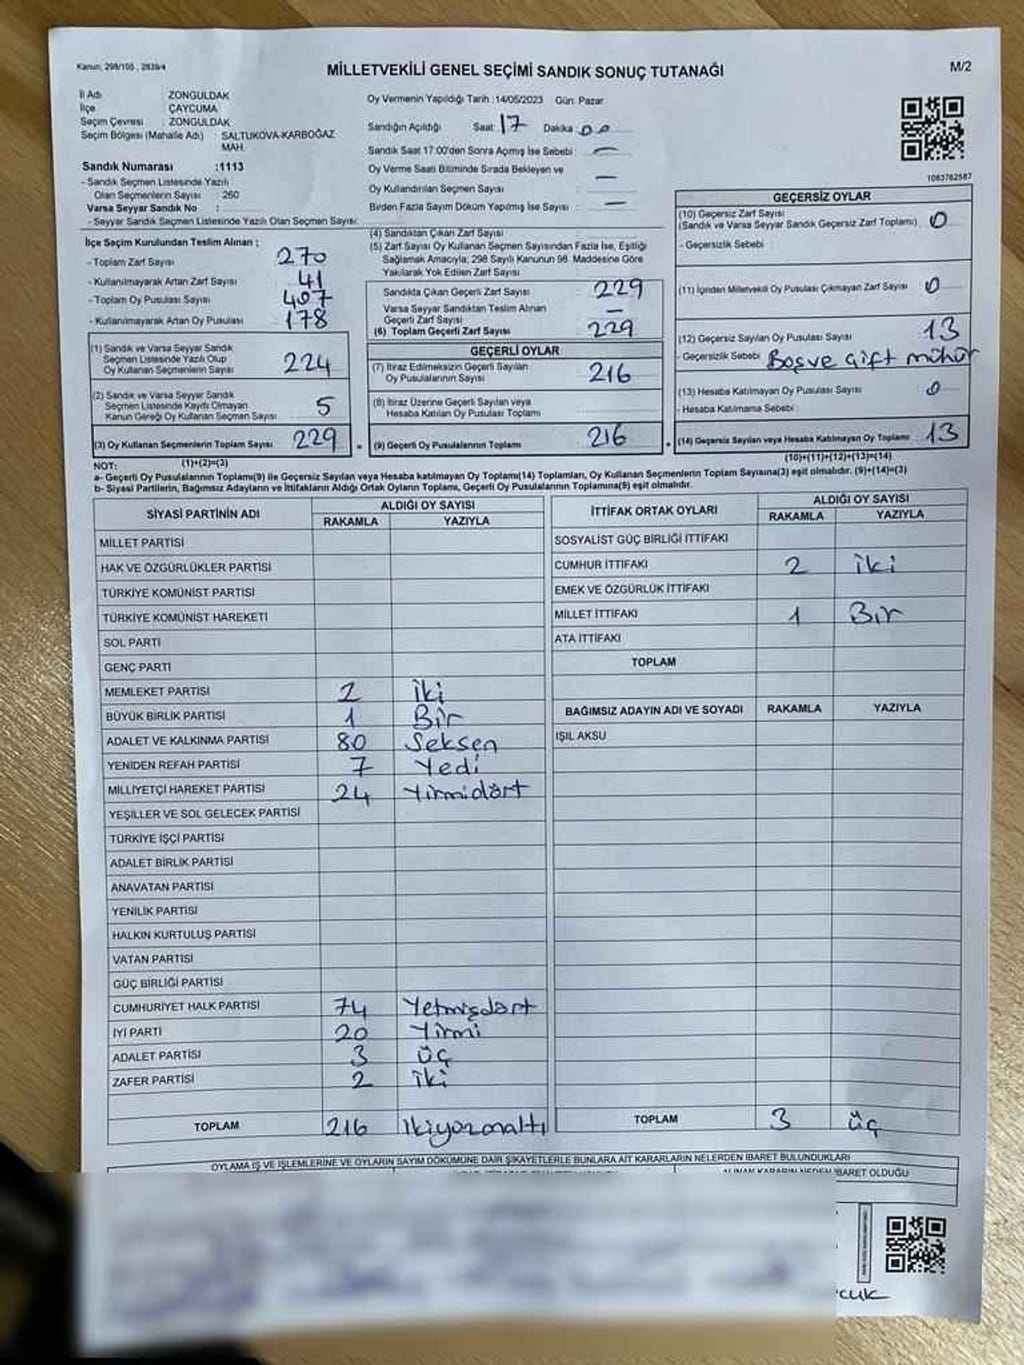 Kanun; 298/105 ; 2839/4
MİLLETVEKİLİ GENEL SEÇİMİ SANDIK SONUÇ TUTANAĞI
M/2
İl Adı : ZONGULDAK
İlçe : ÇAYCUMA
Seçim Çevresi : ZONGULDAK
Seçim Bölgesi (Mahalle Adı) : SALTUKOVA-KARBOĞAZ
MAH.
Sandık Numarası :1113
- Sandık Seçmen Listesinde Yazılı
Olan Seçmenlerin Sayısı : 260
Varsa Seyyar Sandık No :
- Seyyar Sandık Seçmen Listesinde Yazılı Olan Seçmen Sayısı:
Oy Vermenin Yapıldığı Tarih :14/05/2023 Gün: Pazar
Sandığın Açıldığı Saat 17 Dakika 00
Sandık Saat 17:00'den Sonra Açımış İse Sebebi : —
Oy Verme Saati Bitiminde Sırada Bekleyen ve
Oy Kullandırılan Seçmen Sayısı : —
Birden Fazla Sayım Döküm Yapılmış İse Sayısı : —
1083782587
İlçe Seçim Kurulundan Teslim Alınan ;
- Toplam Zarf Sayısı : 270
- Kullanılmayarak Artan Zarf Sayısı : 41
- Toplam Oy Pusulası Sayısı : 407
- Kullanılmayarak Artan Oy Pusulası : 178
(1) Sandık ve Varsa Seyyar Sandık
Seçmen Listesinde Yazılı Olup
Oy Kullanan Seçmenlerin Sayısı : 224
(2) Sandık ve Varsa Seyyar Sandık
Seçmen Listesinde Kaydı Olmayan
Kanun Gereği Oy Kullanan Seçmen Sayısı : 5
(3) Oy Kullanan Seçmenlerin Toplam Sayısı : 229
(4) Sandıktan Çıkan Zarf Sayısı :
(5) Zarf Sayısı Oy Kullanan Seçmen Sayısından Fazla İse, Eşitliği
Sağlamak Amacıyla; 298 Sayılı Kanunun 98. Maddesine Göre
Yakılarak Yok Edilen Zarf Sayısı :
Sandıkta Çıkan Geçerli Zarf Sayısı : 229
Varsa Seyyar Sandıktan Teslim Alınan
Geçerli Zarf Sayısı : —
(6) Toplam Geçerli Zarf Sayısı : 229
GEÇERLİ OYLAR
(7) İtiraz Edilmeksizin Geçerli Sayılan
Oy Pusulalarının Sayısı : 216
(8) İtiraz Üzerine Geçerli Sayılan veya
Hesaba Katılan Oy Pusulası Toplamı :
(9) Geçerli Oy Pusulalarının Toplamı : 216
GEÇERSİZ OYLAR
(10) Geçersiz Zarf Sayısı
(Sandık ve Varsa Seyyar Sandık Geçersiz Zarf Toplamı) : 0
- Geçersizlik Sebebi :
(11) İçinden Milletvekili Oy Pusulası Çıkmayan Zarf Sayısı : 0
(12) Geçersiz Sayılan Oy Pusulası Sayısı : 13
- Geçersizlik Sebebi : Boş ve çift mühür
(13) Hesaba Katılmayan Oy Pusulası Sayısı : 0
- Hesaba Katılmama Sebebi :
(14) Geçersiz Sayılan veya Hesaba Katılmayan Oy Toplamı : 13
NOT: (1)+(2)=(3)
(10)+(11)+(12)+(13)=(14)
a- Geçerli Oy Pusulalarının Toplamı(9) ile Geçersiz Sayılan veya Hesaba katılmayan Oy Toplamı(14) Toplamları, Oy Kullanan Seçmenlerin Toplam Sayısına(3) eşit olmalıdır. (9)+(14)=(3)
b- Siyasi Partilerin, Bağımsız Adayların ve İttifakların Aldığı Ortak Oyların Toplamı, Geçerli Oy Pusulalarının Toplamına(9) eşit olmalıdır.
SİYASİ PARTİNİN ADI ALDIĞI OY SAYISI
RAKAMLA YAZIYLA
MİLLET PARTİSİ
HAK VE ÖZGÜRLÜKLER PARTİSİ
TÜRKİYE KOMÜNİST PARTİSİ
TÜRKİYE KOMÜNİST HAREKETİ
SOL PARTİ
GENÇ PARTİ
MEMLEKET PARTİSİ 2 iki
BÜYÜK BİRLİK PARTİSİ 1 Bir
ADALET VE KALKINMA PARTİSİ 80 Seksen
YENİDEN REFAH PARTİSİ 7 Yedi
MİLLİYETÇİ HAREKET PARTİSİ 24 Yirmidört
YEŞİLLER VE SOL GELECEK PARTİSİ
TÜRKİYE İŞÇİ PARTİSİ
ADALET BİRLİK PARTİSİ
ANAVATAN PARTİSİ
YENİLİK PARTİSİ
HALKIN KURTULUŞ PARTİSİ
VATAN PARTİSİ
GÜÇ BİRLİĞİ PARTİSİ
CUMHURİYET HALK PARTİSİ 74 Yetmişdört
İYİ PARTİ 20 Yirmi
ADALET PARTİSİ 3 üç
ZAFER PARTİSİ 2 iki
TOPLAM 216 ikiyüzonaltı
İTTİFAK ORTAK OYLARI ALDIĞI OY SAYISI
RAKAMLA YAZIYLA
SOSYALİST GÜÇ BİRLİĞİ İTTİFAKI
CUMHUR İTTİFAKI 2 iki
EMEK VE ÖZGÜRLÜK İTTİFAKI
MİLLET İTTİFAKI 1 Bir
ATA İTTİFAKI
TOPLAM
BAĞIMSIZ ADAYIN ADI VE SOYADI RAKAMLA YAZIYLA
IŞIL AKSU
TOPLAM 3 üç
OYLAMA İŞ VE İŞLEMLERİNE VE OYLARIN SAYIM DÖKÜMÜNE DAİR ŞİKAYETLERLE BUNLARA AİT KARARLARIN NELERDEN İBARET BULUNDUKLARI
ALINAN KARARIN NEDEN İBARET OLDUĞU